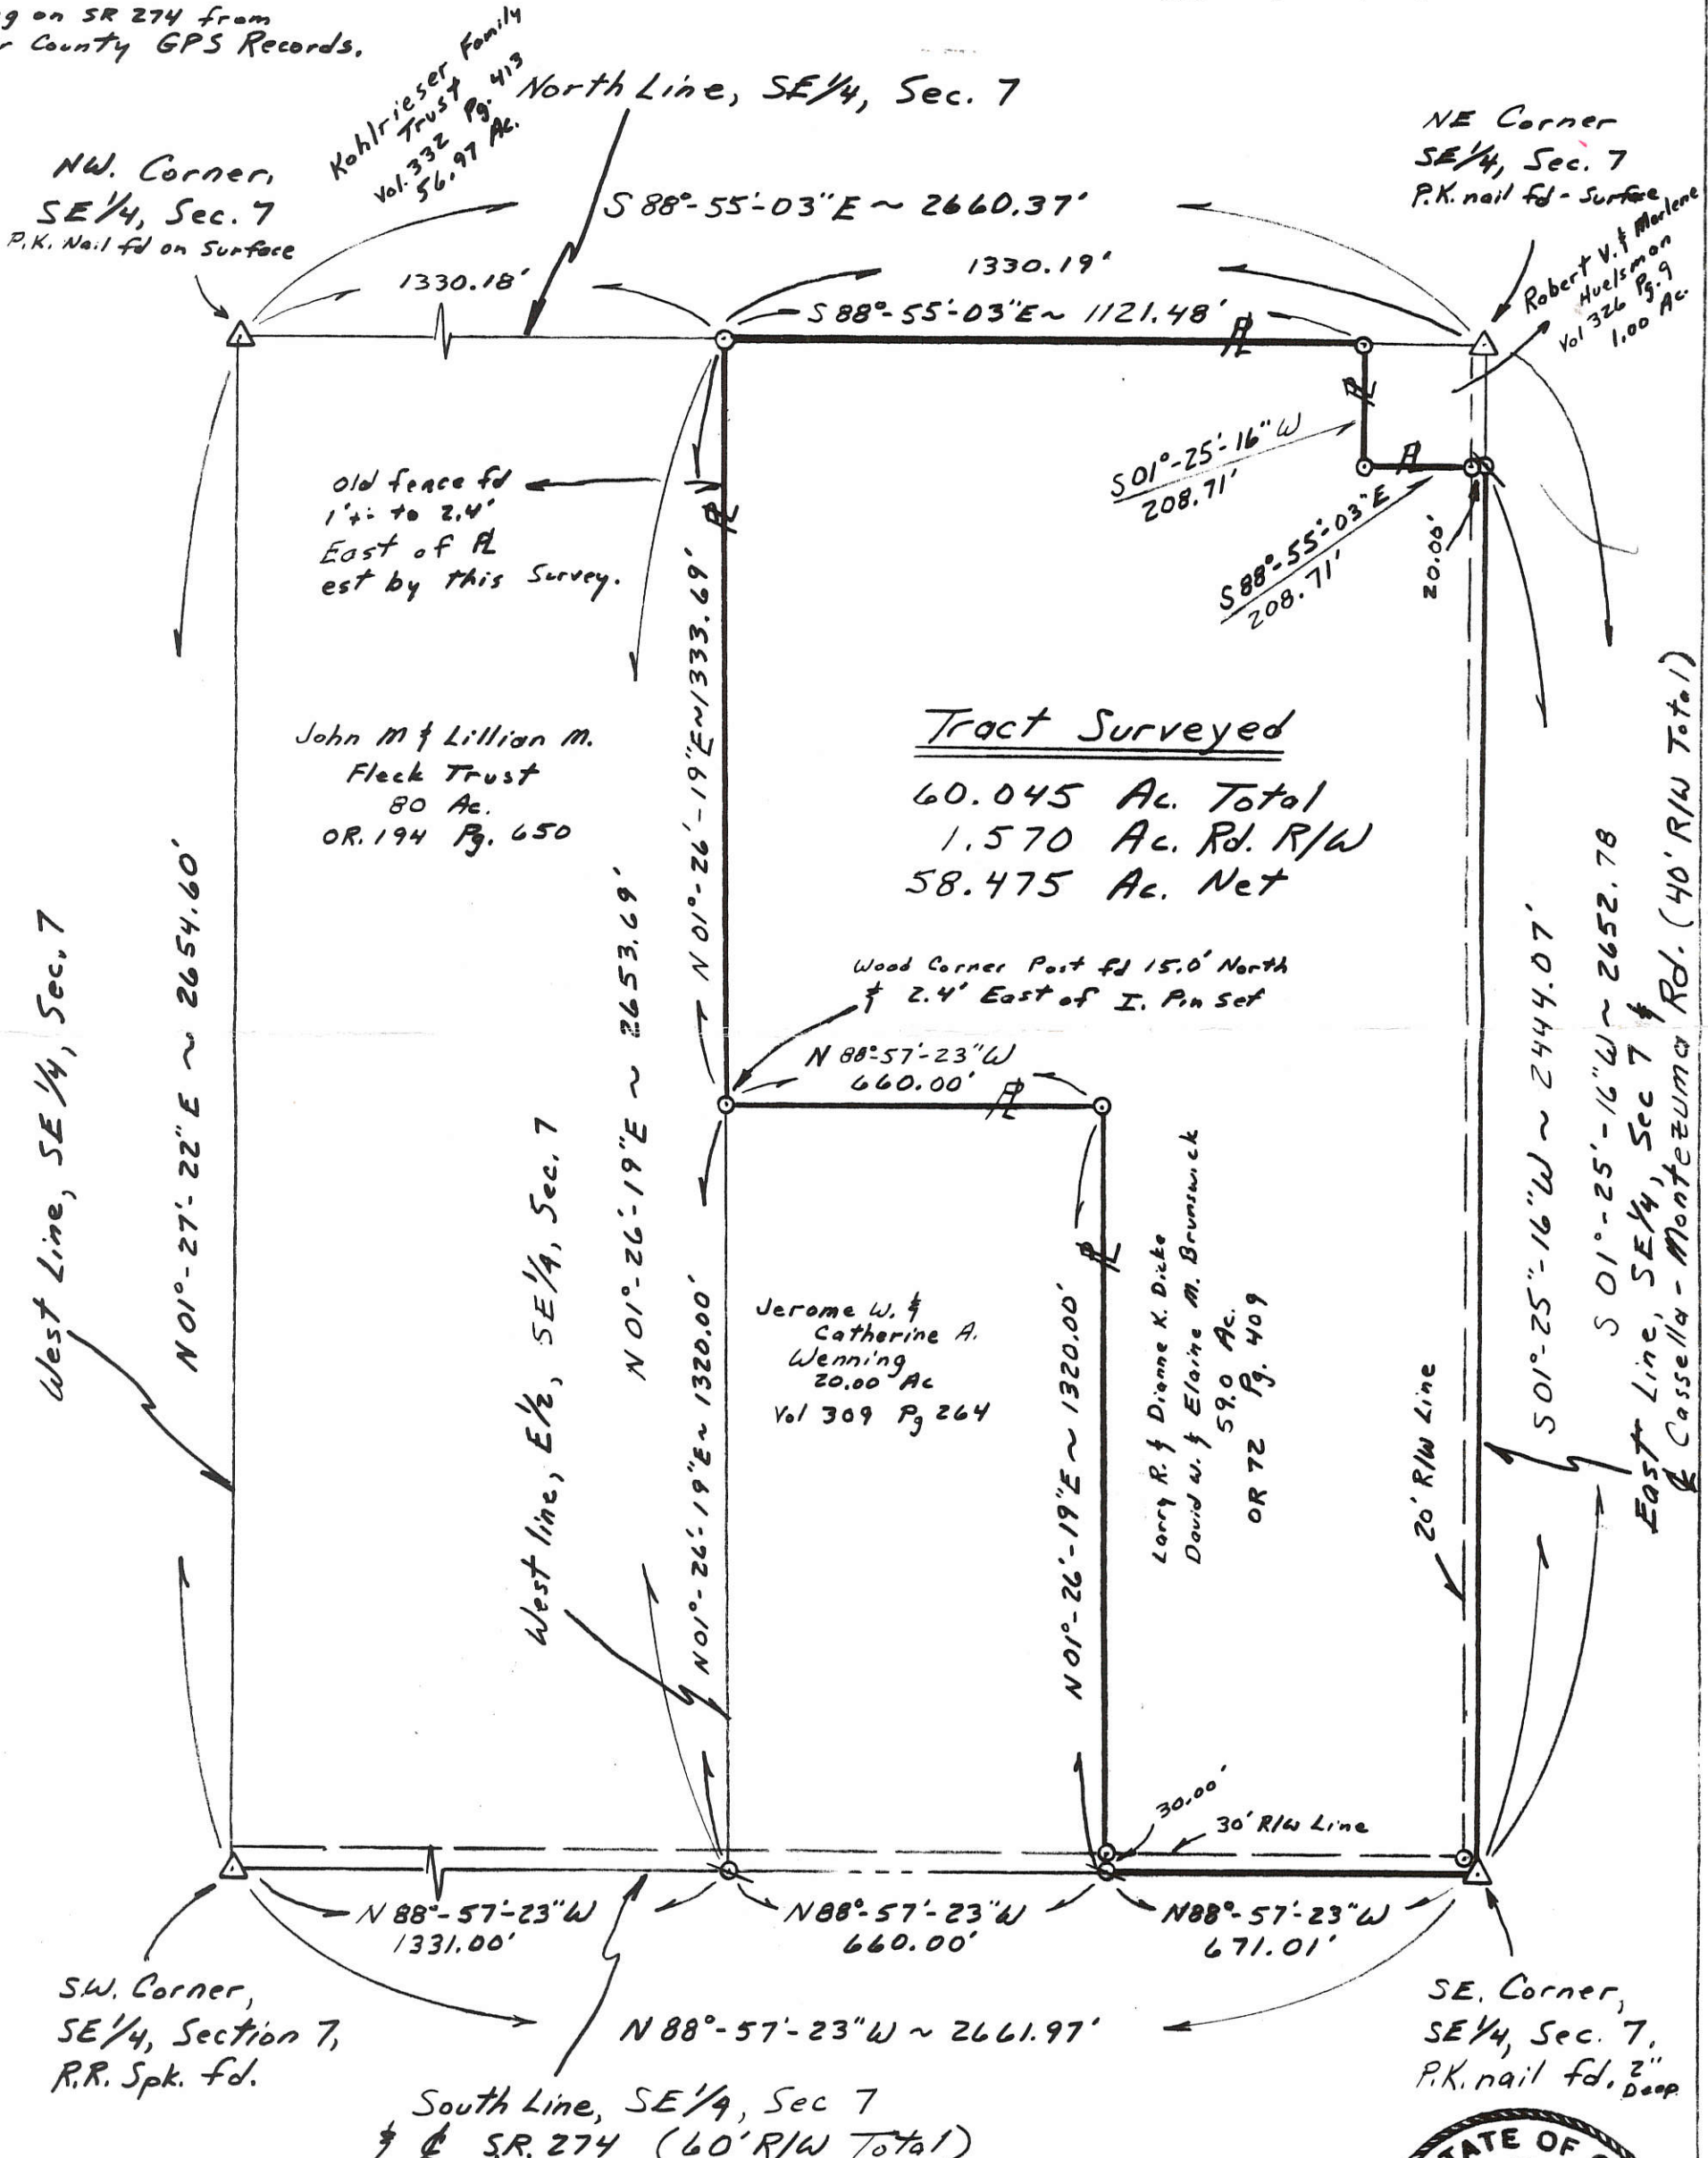 on SR 274 from
County GPS Records.
Kohlrieser Family
Trust
Vol. 332 Pg. 413
56.97 Ac.
North Line, SE 1/4, Sec. 7
NW. Corner,
SE 1/4, Sec. 7
P.K. Nail fd on Surface
NE Corner
SE 1/4, Sec. 7
P.K. nail fd - Surface
Robert V. & Marlene
Huelsman
Vol 326 Pg. 9
1.00 Ac.
S 88°-55'-03"E ~ 2660.37'
1330.18'
1330.19'
S 88°-55'-03"E ~ 1121.48'
PL
PL
PL
S 01°-25'-16"W
208.71'
S 88°-55'-03"E
208.71'
20.00'
Old fence fd
1'+- to 2.4'
East of PL
est by this Survey.
PL
N 01°-26'-19"E ~ 1333.69'
John M & Lillian M.
Fleck Trust
80 Ac.
OR. 194 Pg. 650
Tract Surveyed
60.045 Ac. Total
1.570 Ac. Rd. R/W
58.475 Ac. Net
Wood Corner Post fd 15.0' North
& 2.4' East of I. Pin Set
N 88°-57'-23"W
660.00'
PL
West Line, SE 1/4, Sec. 7
N 01°-27'-22"E ~ 2654.60'
West line, E 1/2, SE 1/4, Sec. 7
N 01°-26'-19"E ~ 2653.69'
N 01°-26'-19"E ~ 1320.00'
Jerome W. &
Catherine A.
Wenning
20.00 Ac
Vol 309 Pg 264
PL
N 01°-26'-19"E ~ 1320.00'
Larry R. & Dianne K. Dicke
David W. & Elaine M. Brunswick
59.0 Ac.
OR 72 Pg. 409
20' R/W Line
S 01°-25"-16"W ~ 2444.07'
S 01°-25'-16"W ~ 2652.78
East Line, SE 1/4, Sec 7 &
℄ Cassella - Montezuma Rd. (40' R/W Total)
30.00'
30' R/W Line
N 88°-57'-23"W
1331.00'
N 88°-57'-23"W
660.00'
N 88°-57'-23"W
671.01'
S.W. Corner,
SE 1/4, Section 7,
R.R. Spk. fd.
N 88°-57'-23"W ~ 2661.97'
SE. Corner,
SE 1/4, Sec. 7,
P.K. nail fd. 2"
Deep
South Line, SE 1/4, Sec 7
& ℄ S.R. 274 (60' R/W Total)
STATE OF